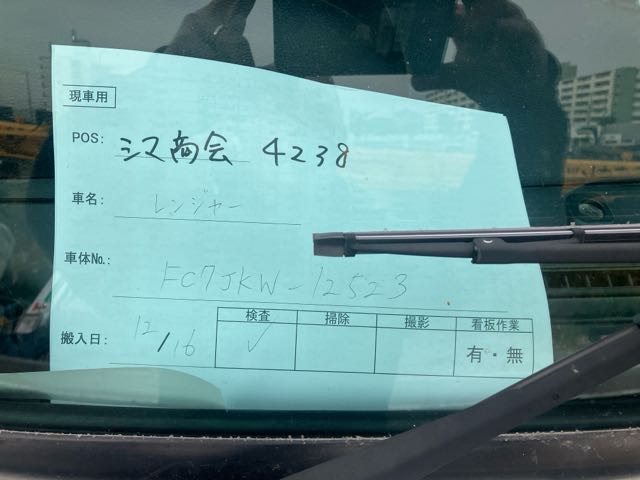 現車用
POS: シマ商会 4238
車名: レンジャー
車体No.: FC7JKW-12523
搬入日: 12/16
検査 掃除 撮影 看板作業
✓ 有・無